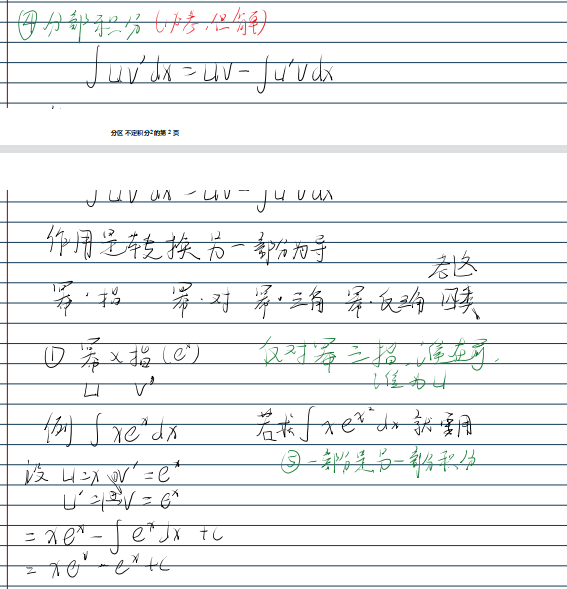 ④ 分部积分 (必考,但简)
∫uv'dx = uv - ∫u'vdx
分区 不定积分2 的第 2 页
∫uv'dx = uv - ∫u'vdx
作用是转换另一部分为导
考这
幂·指 幂·对 幂·三角 幂·反三角 四类
① 幂×指(eˣ) 反对幂三指,谁在前,
u v' 谁为u
例 ∫xeˣdx 若求∫xe^{x²}dx 就要用
设 u=x v'=eˣ ③一部分是另一部分积分
u'=1 v=eˣ
= xeˣ - ∫eˣdx +c
= xeˣ - eˣ+c